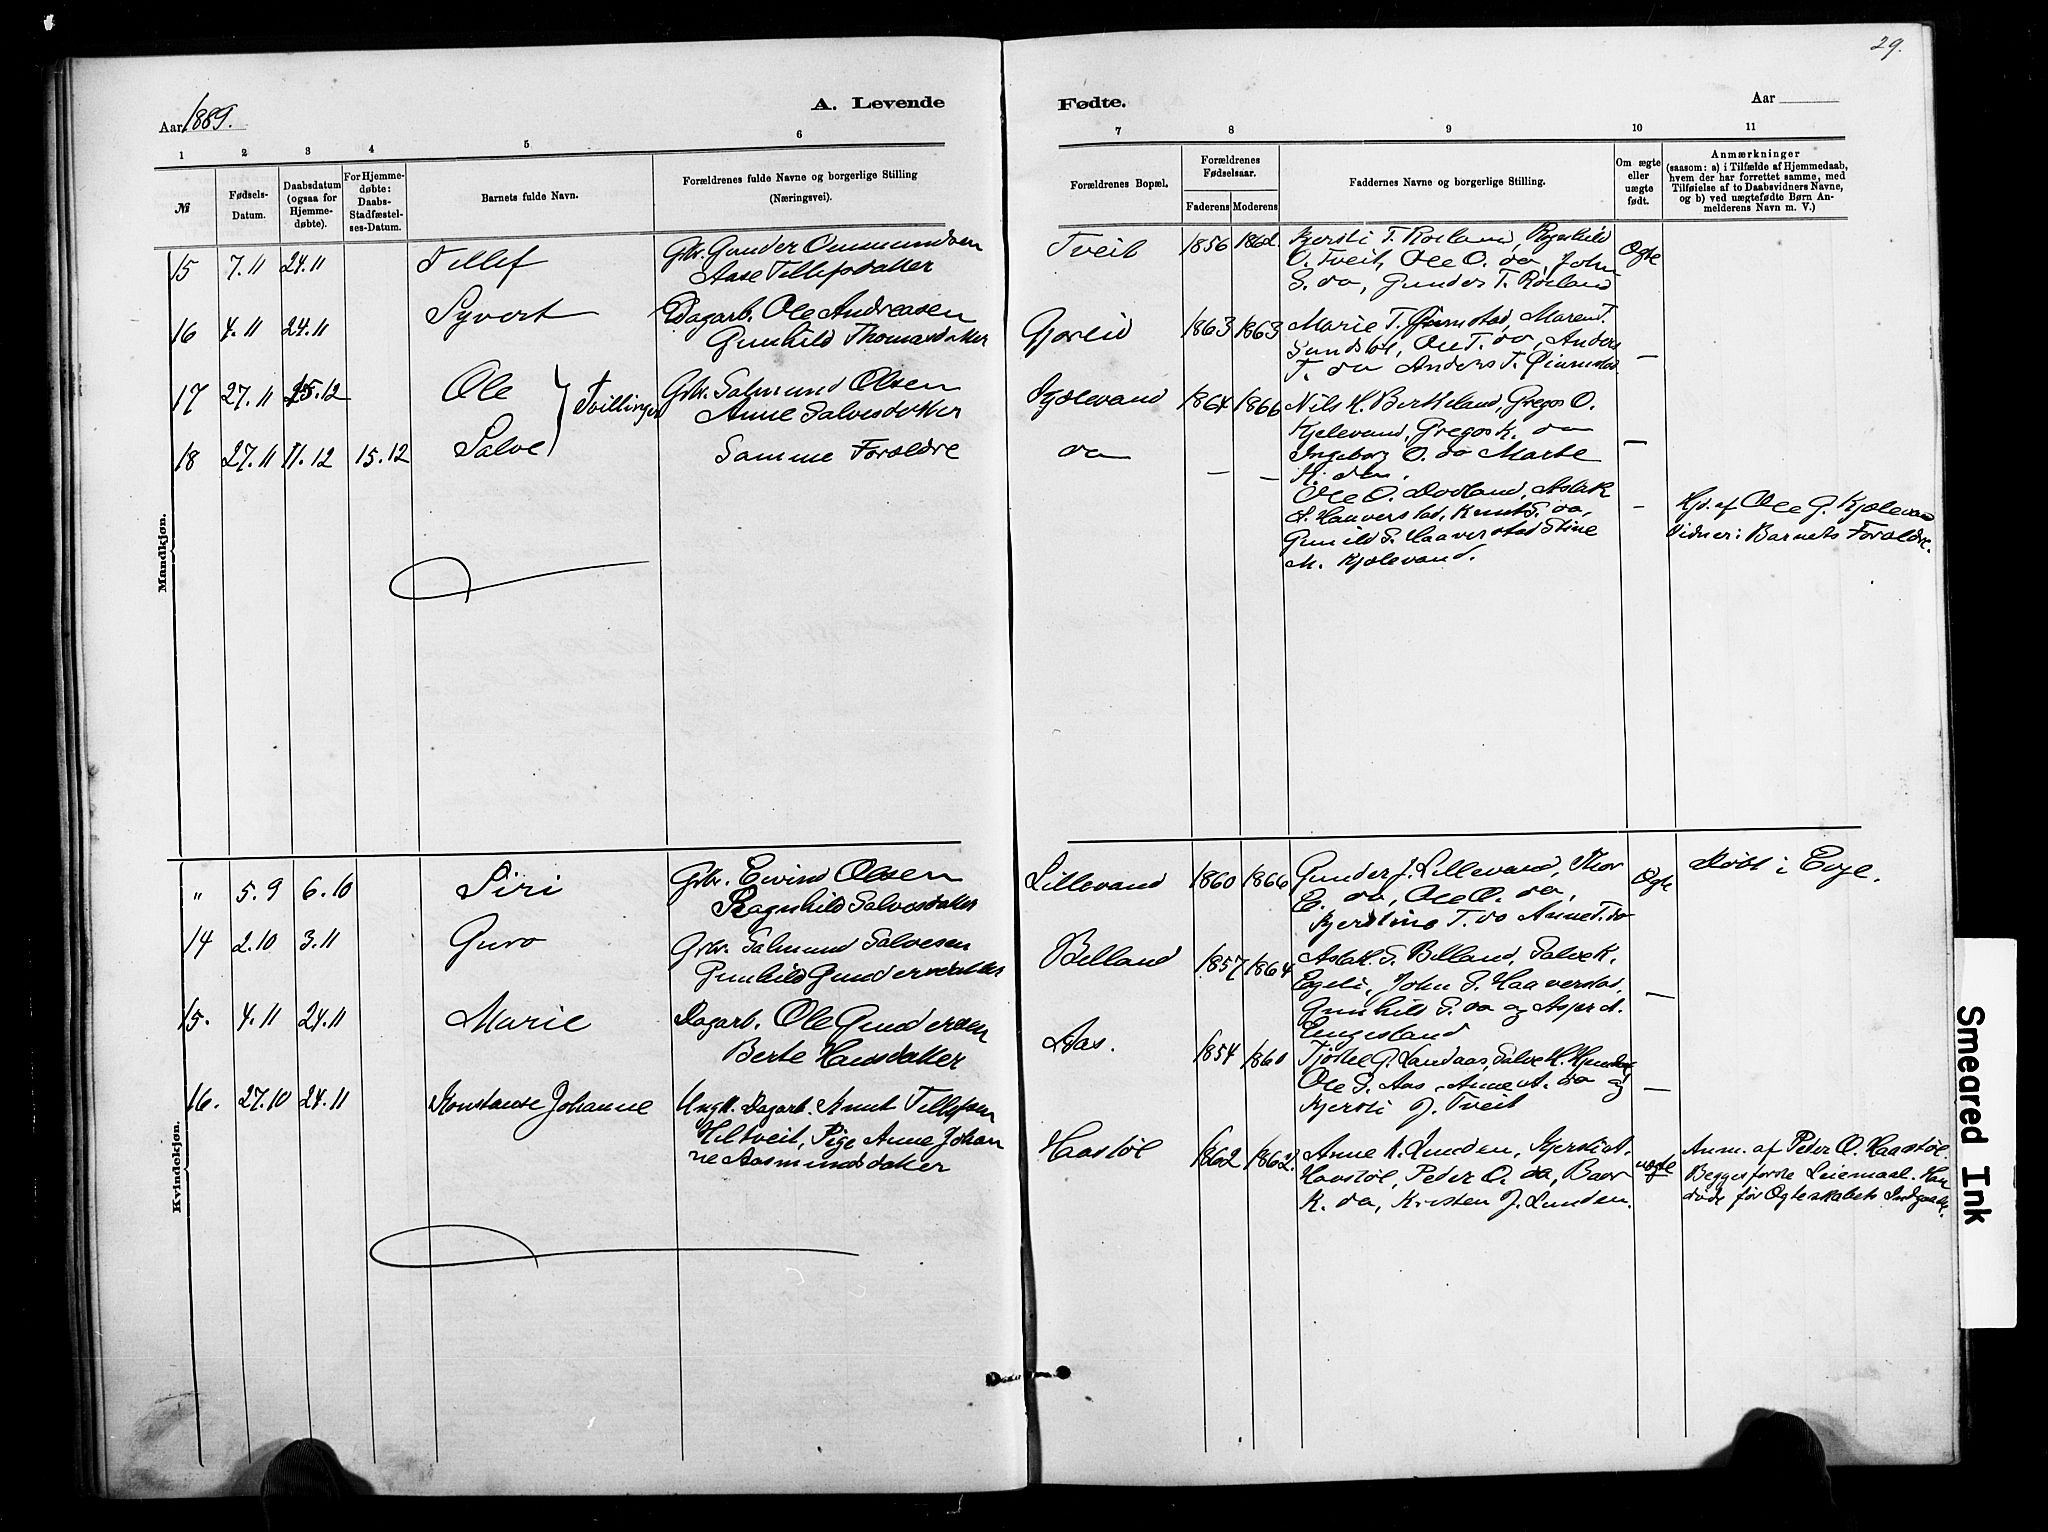 29.
Aar 1889.
A. Levende
Fødte.
Aar
1 2 3 4 5 6 7 8 9 10 11
№
Fødsels-
Datum.
Daabsdatum
(ogsaa for
Hjemme-
døbte).
For Hjemme-
døbte:
Daabs-
Stadfæstel-
ses-Datum.
Barnets fulde Navn.
Forældrenes fulde Navne og borgerlige Stilling
(Næringsvei).
Forældrenes Bopæl.
Forældrenes
Fødselsaar.
Faderens Moderens
Faddernes Navne og borgerlige Stilling.
Om ægte
eller
uægte
født.
Anmærkninger
(saasom: a) i Tilfælde af Hjemmedaab,
hvem der har forrettet samme, med
Tilføielse af to Daabsvidners Navne,
og b) ved uægtefødte Børn An-
melderens Navn m. V.)
Mandkjøn.
15 7.11 24.11 Tellef
Gbr. Gunder Ommundsen
Aase Tellefsdatter
Tveit 1856 1862.
Kjersti T. Roiland, Ragnhild
O. Tveit, Ole O. do, John
S. do, Gunder T. Roiland
Ægte
16 4.11 24.11 Syvert
Dagarb. Ole Andreasen
Gunhild Thomasdatter
1863 1863
Marie T. Maren T.
Ole T. do, Anders
T. do Anders T.
—
17 27.11 15.12 Ole
Tvillinger
Gbr. Salmund Olsen
Anne Salvesdatter
Kjølevand 1864 1866
Nils H. Berkeland, Gregos O.
Kjelevand, Gregos K. do
Ingeborg O. do Marte
K. do.
—
18 27.11 11.12 15.12 Salve
Samme Forældre
do — —
Ole O. Dovland, Aslak
S. Haaverstad, Knut S. do,
Gunild S. Haaverstad Stine
M. Kjølevand.
—
Hjd. af Ole G. Kjølevan
Vidner: Barnets Forældre.
Kvindekjøn.
" 5.9 6.10 Siri
Gbr. Eivind Olsen
Ragnhild Salvesdatter
Lillevand 1860 1866
Gunder J. Lillevand, Thor
E. do, Ole O. do,
Kjerstine T. do Anne T. do
Ægte
Døbt i Evje.
14 2.10 3.11 Guro
Gbr. Salmund Salvesen
Gunhild Gundersdatter
Belland 1857 1864
Aslak S. Belland, Salve K.
Egeli, John S. Haaverstad,
Gunhild S. do og Asjer A.
Engesland
—
15. 4.11 24.11 Marie
Dagarb. Ole Gundersen
Berte Hansdatter
Aas. 1854 1860
G. Landaas, Salve H.
Ole S. Aas, Anne A. do og
Kjersti J. Tveit
—
16. 27.10 24.11 Konstanse Johanne
Ungk. Dagarb. Knut Tellefsen
Heltveit, Pige Anne Johan
ne Aasmundsdatter
Haastøl 1862 1862.
Anne A. Lunden, Kjersti A.
Haastøl, Peder O. do, Baar
K. do, Kristen J. Lunden.
uægte
Anm. af Peder O. Haastøl.
Begges første Leiemaal. Han
døde før Ægteskabets Indgaaelse.
Smeared Ink